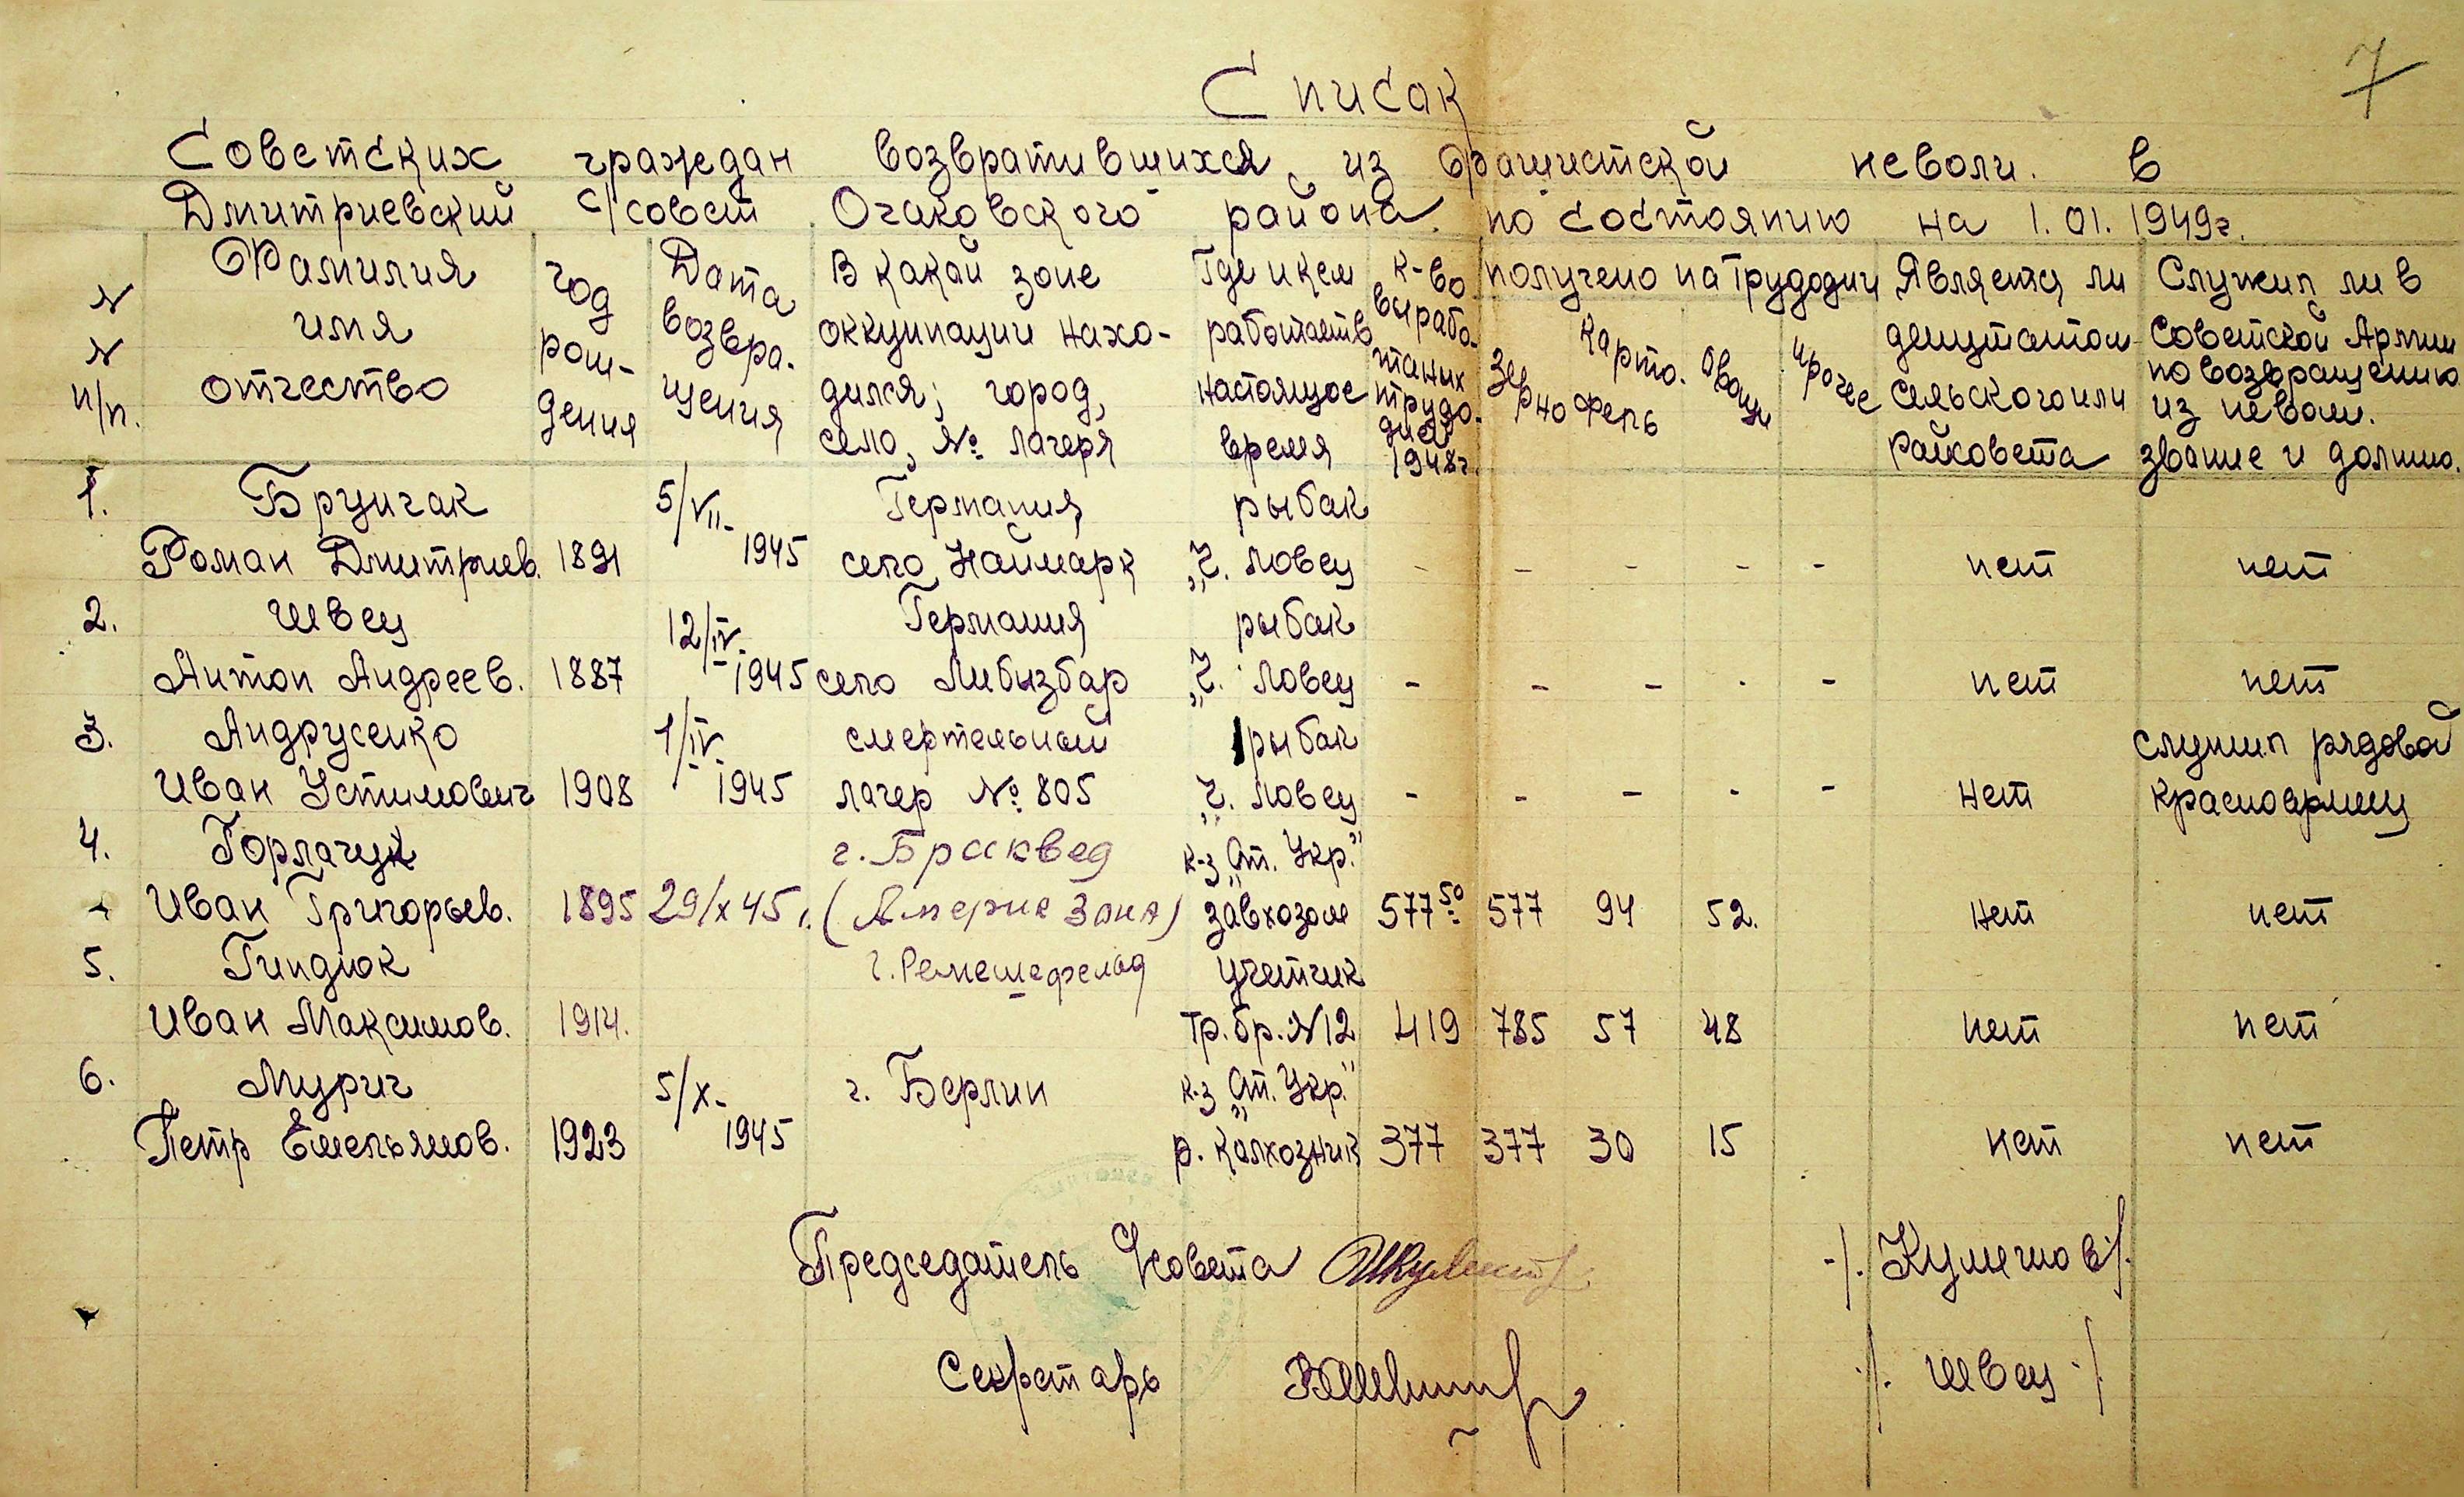 7
Список
Советских граждан возвратившихся из фашистской неволи. в
Дмитриевский с/совет Очаковского района. по состоянию на 1.01.1949г.
N N п/п.
Фамилия имя отчество
год рож-дения
Дата возвра-щения
В какой зоне оккупации нахо-дился; город, село, № лагеря
Где и кем работает в настоящое время
к-во вырабо-таных трудо-дней 1948г.
получено на трудодни
зерно
карто-фель
овощи
прочее
Является ли депутатом сельского или райсовета
Служил ли в Советской Армии по возвращению из неволи. звание и должно.
1. Бруичак 5/VII- Германия рыбак
Роман Дмитриев. 1891 1945 село Наймарк „Ч. Ловец - - - - - нет нет
2. Швец 12/IV- Германия рыбак
Антон Андреев. 1887 1945 село Либызбар „Ч. Ловец - - - - - нет нет
3. Андрусенко 1/IV- смертельный рыбак служил рядовой
Иван Устимович 1908 1945 лагер № 805 „Ч. Ловец - - - - - нет красноармеец
4. Горлачук г. Браквед к-з „Ст. Укр."
Иван Григорьев. 1895 29/X 45 г. (Америк Зона) завхозом 577 50 577 94 52. нет нет
5. Гиндюк г. Ремешефельд учетчик
Иван Максимов. 1914. Тр. бр. N12 419 785 57 48 нет нет
6. Мурич 5/X- г. Берлин к-з „Ст. Укр."
Петр Емельянов. 1923 1945 р. колхозник 377 377 30 15 нет нет
Председатель с/совета -/. Кулешов ./.
Секретарь ./. Швец ./